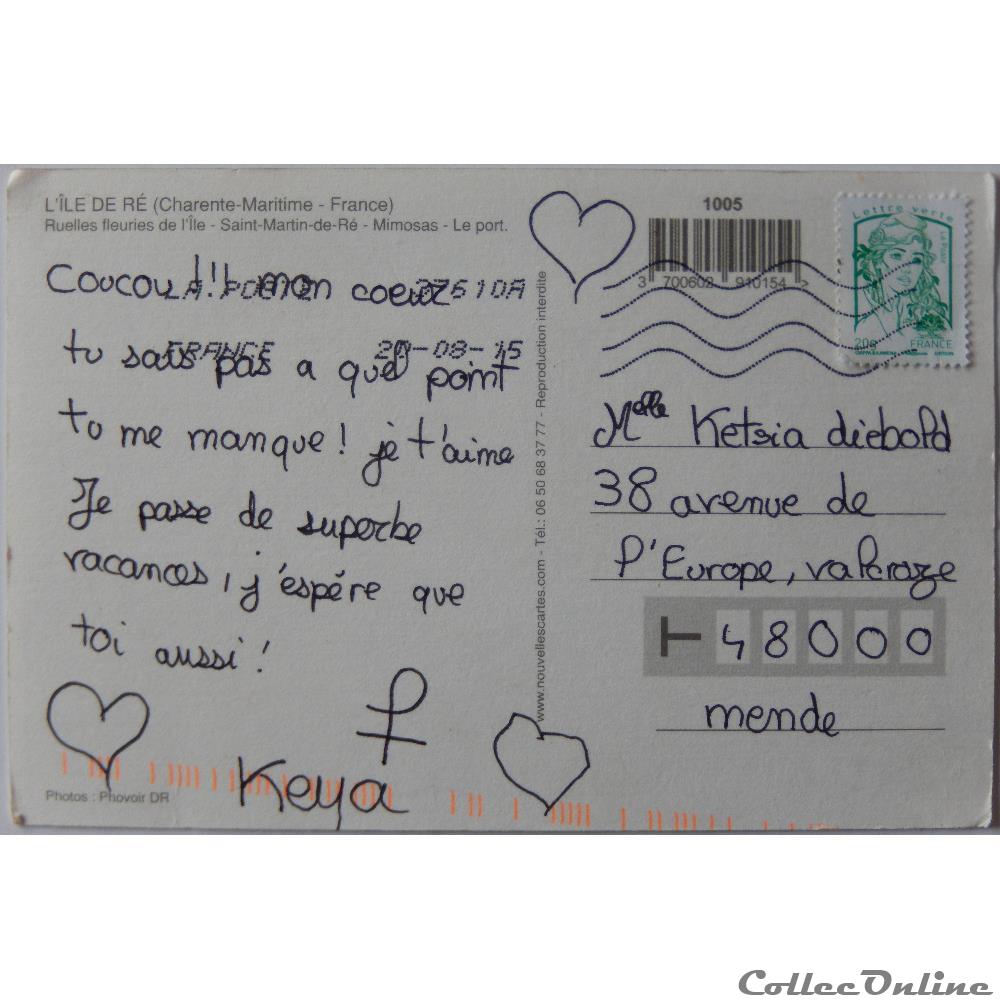 L'ÎLE DE RÉ (Charente-Maritime - France)
Ruelles fleuries de l'Île - Saint-Martin-de-Ré - Mimosas - Le port.
Coucou !!! mon coeur
tu sais pas a quel point
tu me manque ! je t'aime
Je passe de superbe
vacances, j'espére que
toi aussi !
Keya
Photos : Phovoir DR
LA POSTE 37610A
FRANCE 20-08-15
www.nouvellescartes.com - Tél.: 06 50 68 37 77 - Reproduction interdite
1005
3 700602 910154 >
Lettre verte
La Poste
20g FRANCE
Melle Ketsia diebold
38 avenue de
l'Europe, valcroze
48000
mende
CollecOnline